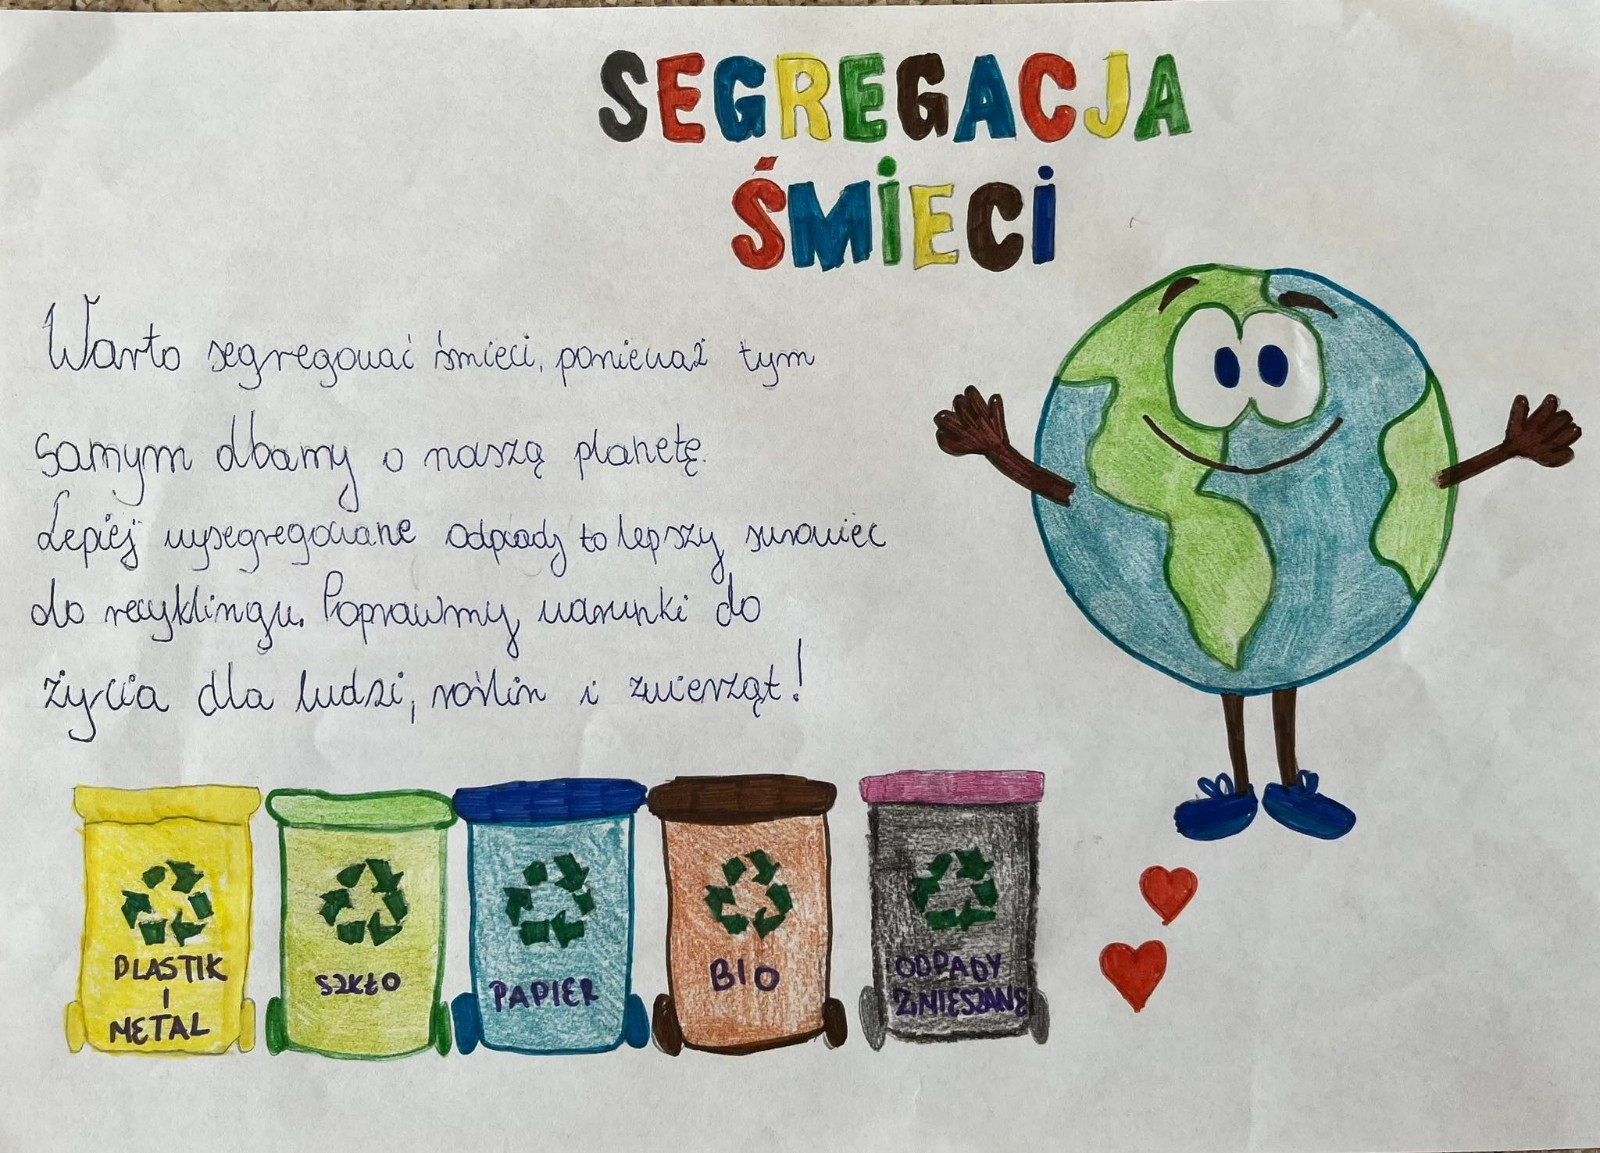 SEGREGACJA
ŚMIECI
Warto segregować śmieci, ponieważ tym
samym dbamy o naszą planetę.
Lepiej wysegregowane odpady to lepszy surowiec
do recyklingu. Poprawmy warunki do
życia dla ludzi, roślin i zwierząt!
PLASTIK
I
METAL
SZKŁO
PAPIER
BIO
ODPADY
ZMIESZANE